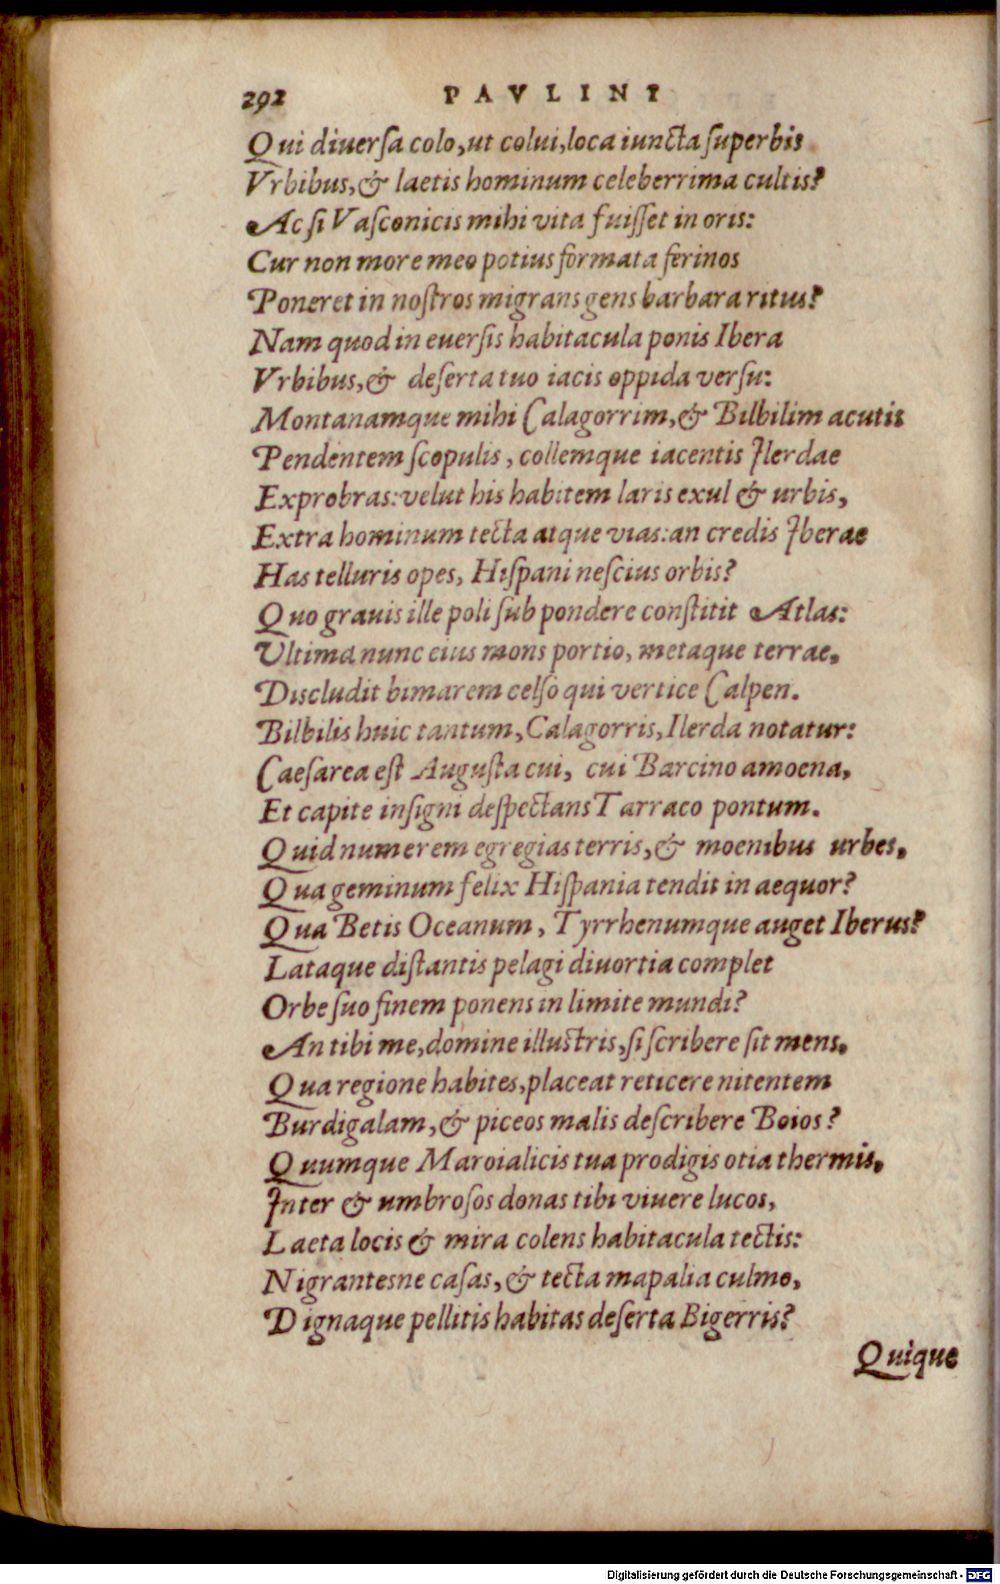 292 PAVLINI
Qui diuerſa colo, ut colui, loca iuncta ſuperbis
Vrbibus, & laetis hominum celeberrima cultis?
Ac ſi Vaſconicis mihi vita fuiſſet in oris:
Cur non more meo potius formata ferinos
Poneret in noſtros migrans gens barbara ritus?
Nam quod in euerſis habitacula ponis Ibera
Vrbibus, & deſerta tuo iacis oppida verſu:
Montanamque mihi Calagorrim, & Bilbilim acutis
Pendentem ſcopulis, collemque iacentis Ilerdae
Exprobras: velut his habitem laris exul & urbis,
Extra hominum tecta atque vias: an credis Iberae
Has telluris opes, Hiſpani neſcius orbis?
Quo grauis ille poli ſub pondere conſtitit Atlas:
Ultima nunc eius mons portio, metaque terrae,
Discludit bimarem celſo qui vertice Calpen.
Bilbilis huic tantum, Calagorris, Ilerda notatur:
Caeſarea eſt Auguſta cui, cui Barcino amoena,
Et capite inſigni deſpectans Tarraco pontum.
Quid numerem egregias terris, & moenibus urbes,
Qua geminum felix Hiſpania tendit in aequor?
Qua Betis Oceanum, Tyrrhenumque auget Iberus?
Lataque diſtantis pelagi diuortia complet
Orbe ſuo finem ponens in limite mundi?
An tibi me, domine illuſtris, ſi ſcribere ſit mens,
Qua regione habites, placeat reticere nitentem
Burdigalam, & piceos malis deſcribere Boios?
Quumque Maroialicis tua prodigis otia thermis,
Inter & umbroſos donas tibi viuere lucos,
Laeta locis & mira colens habitacula tectis:
Nigrantesne caſas, & tecta mapalia culmo,
Dignaque pellitis habitas deſerta Bigerris?
Quique
Digitalisierung gefördert durch die Deutsche Forschungsgemeinschaft - DFG